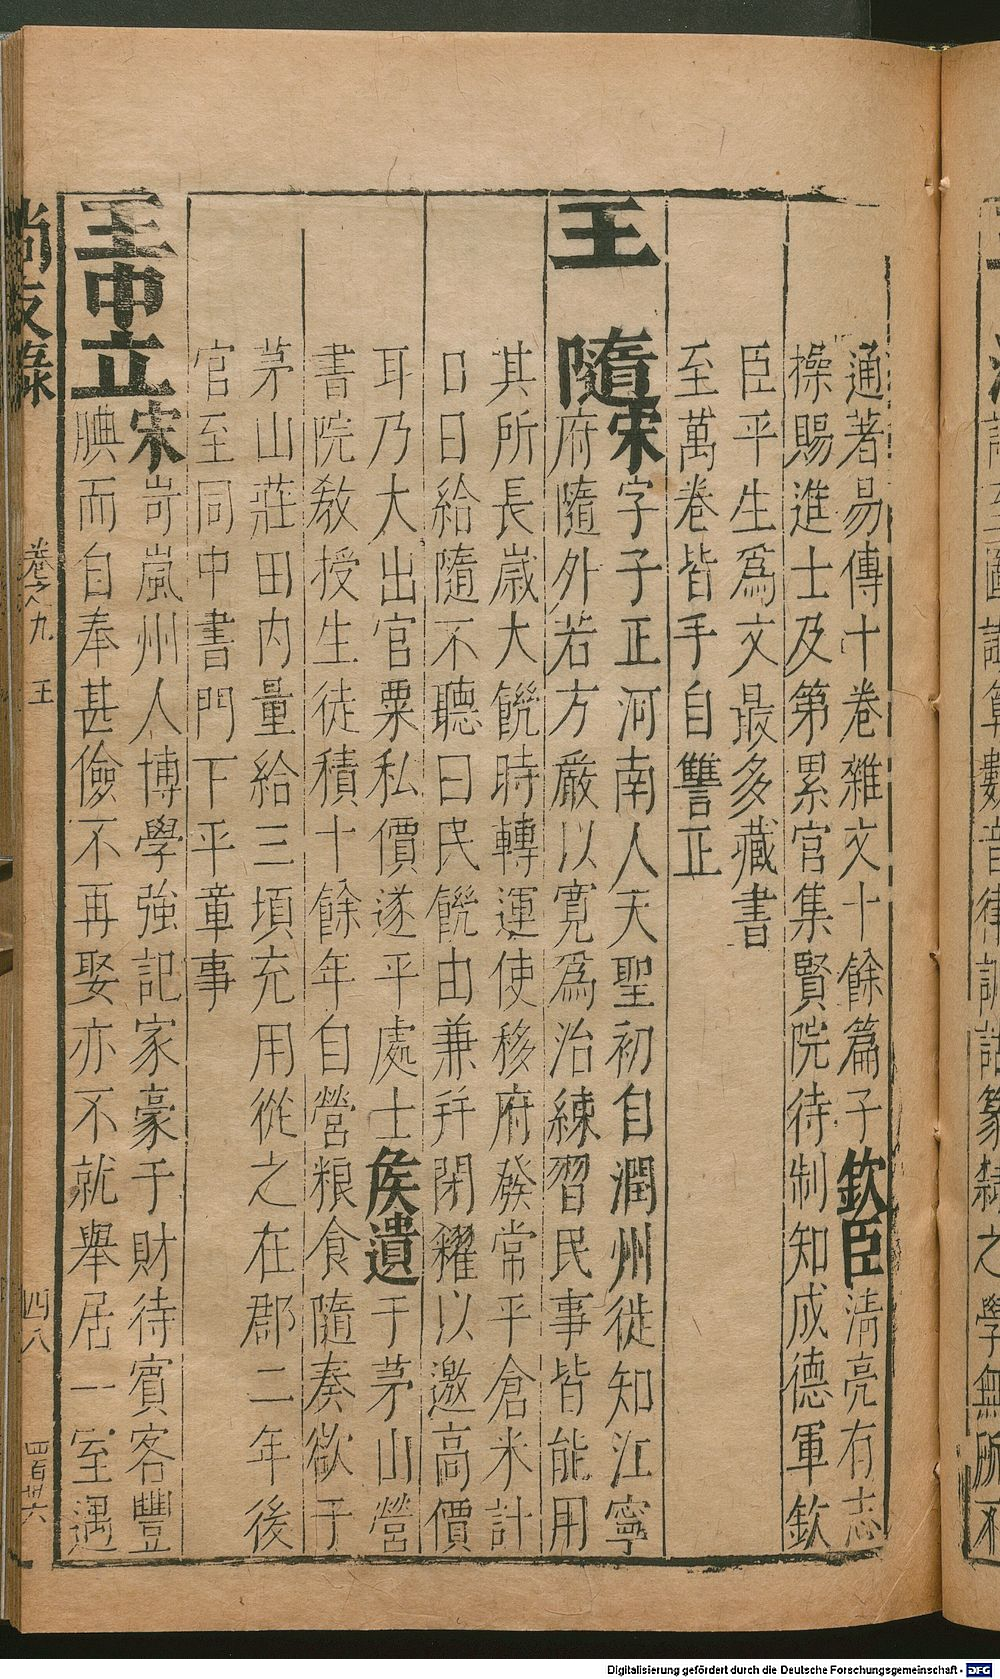 通著易傳十卷雜文十餘篇子欽臣淸亮有志
操賜進士及第累官集賢院待制知成德軍欽
臣平生爲文最多藏書
至萬卷皆手自讐正
王隨宋字子正河南人天聖初自潤州徙知江寧
府隨外若方嚴以寬爲治練習民事皆能用
其所長歲大饑時轉運使移府發常平倉米計
口日給隨不聽曰民饑由兼幷閉糴以邀高價
耳乃大出官粟私價遂平處士侯遺于茅山營
書院敎授生徒積十餘年自營粮食隨奏欲于
茅山莊田內量給三頃充用從之在郡二年後
官至同中書門下平章事
王中立宋岢嵐州人博學強記家豪于財待賓客豐
腆而自奉甚儉不再娶亦不就舉居一室遇
尚友錄 卷之九 王 四八 四百卅六
Digitalisierung gefördert durch die Deutsche Forschungsgemeinschaft - DFG